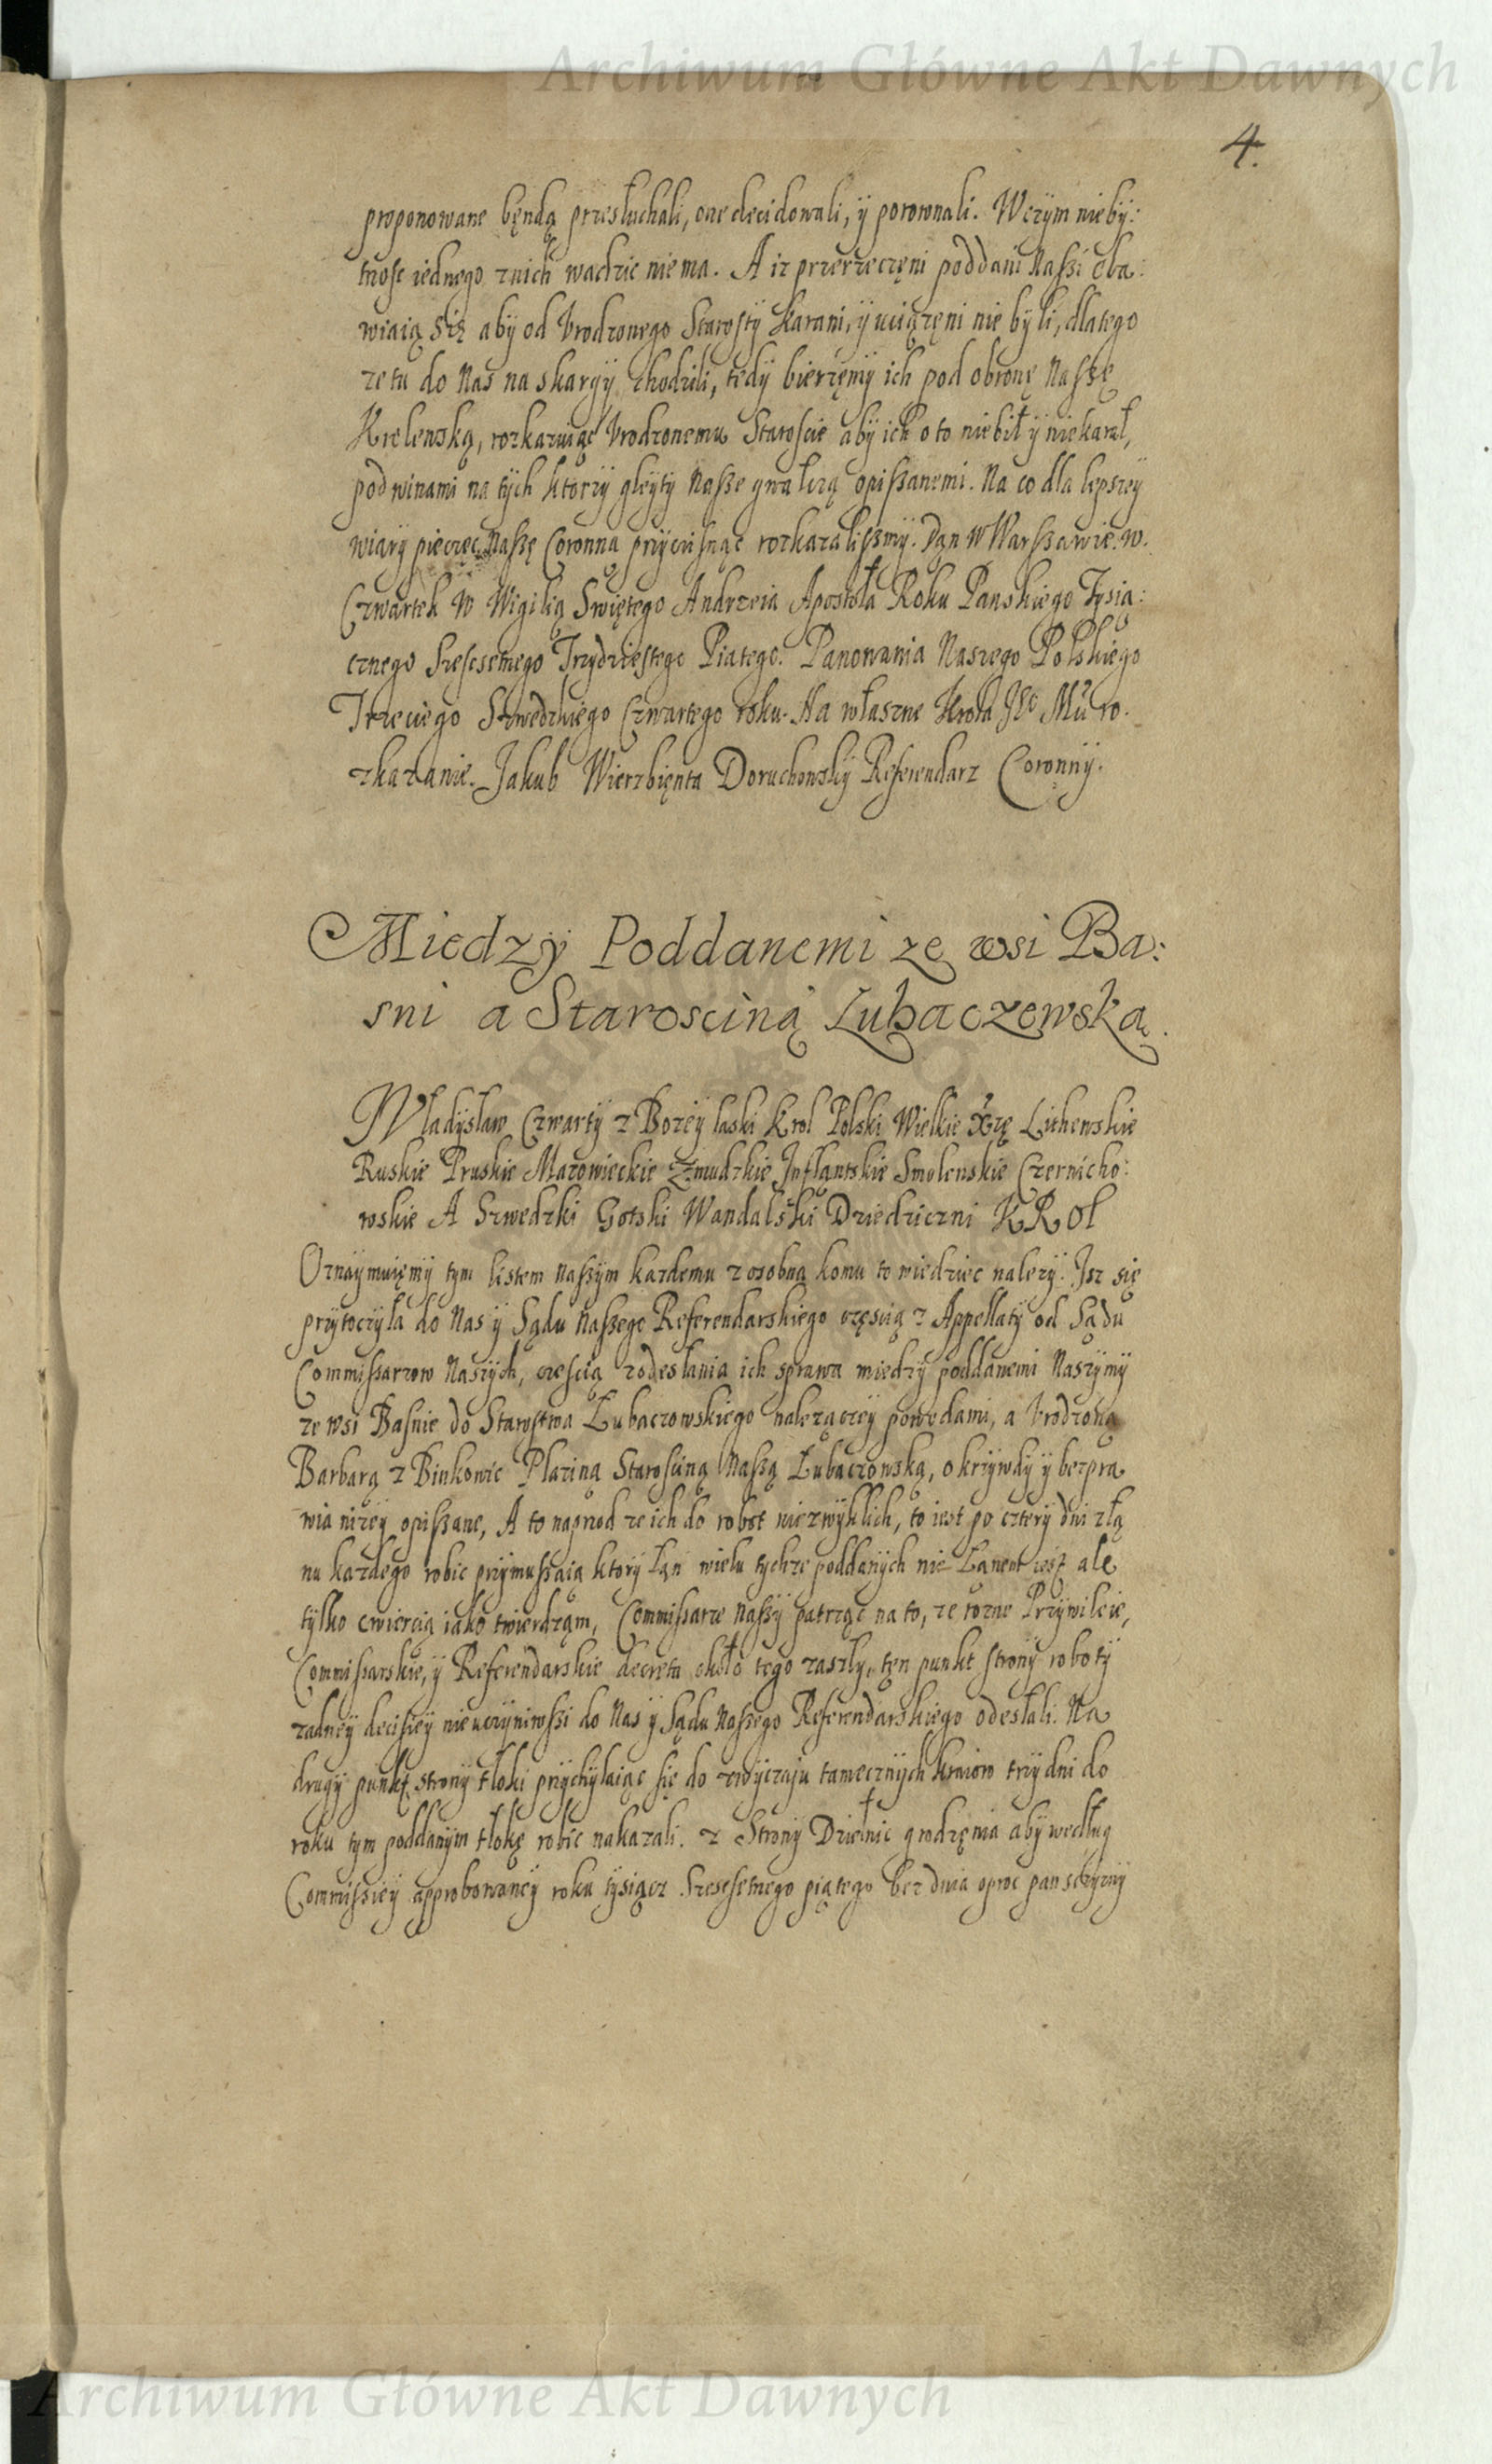 Archiwum Główne Akt Dawnych
4.
proponowane będą przesłuchali, one decidowali, ÿ porownali. Wczym niebÿ:
tnosc iednego znich wadzic niema. A iz przerzeczęni poddani Naßi oba:
wiaią się abÿ od Vrodzonego Starostÿ karani, ÿ uciązęni nie bÿli, dlatego
ze tu do Nas na skargÿ chodzili, tedÿ bierzęmÿ ich pod obronę Naßę
Krolewską, rozkazuiąc Vrodzonemu Staroscie abÿ ich o to niebił ÿ niekarał,
pod winami na tÿch ktorzÿ gleÿtÿ Naße gwałczą opißanemi. Na co dla lepszeÿ
wiarÿ pieczęc Naßę Coronną przÿcisnąc rozkazalißmÿ. Dąn W Warßawie. w.
Czwartek W Wigilią Swiętego Andrzeia Apostoła Roku Panskiego Tÿsia:
cznego Szescsetnego Trzÿdziestego Piatego. Panowania Naszego Polskiego
Trzeciego Szwedzkiego Czwartego roku. Na właszne Krola JEo Mci ro.
zkazanie. Jakub Wierzbięnta Doruchowskÿ Referendarz Coronnÿ.
Miedzÿ Poddanemi ze wsi Ba:
sni a Starosciną Lubaczewską.
Władÿsław Czwartÿ z Bozeÿ łaski Krol Polski Wielkie Xżę Lithewskie
Ruskie Pruskie Mazowieckie Zmudzkie Inflantskie Smolenskie Czernicho:
wskie A Szwedzki Gotski Wandalski Dziedziczni KROl
Oznaÿmuięmÿ tÿm listem Naßÿm kazdemu zosobna komu to wiedziec nalezÿ. Jsz się
przÿtoczÿła do Nas ÿ Sądu Naßego Referendarskiego częscią z Appellatÿ od Sądu
Commissarzow Naszÿch, czescią zodesłania ich sprawa miedzÿ poddanemi Naszÿmÿ
ze wsi Basnie do Starostwa Lubaczowskiego nalezączeÿ powodami, a Vrodzoną
Barbarą z Binkowic Płaziną Starosciną Naßą Lubaczowską, o krzÿwdÿ ÿ bezpra
wia nizeÿ opißane, A to naprzod ze ich do robot niezwÿklich, to iest po czterÿ dni złą
nu kazdego robic przÿmußaią ktorÿ łąn wielu tÿchze poddanÿch nie Lanem iest ale
tÿlko cwiercią iako twierdząm, Commissarze Naßÿ patrząc na to, ze rozne Przÿwileie,
Commissarskie, ÿ Referendarskie decreta około tego zaszłÿ, tęn punkt stronÿ robotÿ
zadneÿ decisieÿ nieuczÿniwßi do Nas ÿ Sądu Naßego Referendarskiego odesłali. Na
drugÿ punkt stronÿ tłoki przÿchÿlaiąc się do zwÿczaju tamecznÿch kraiow trzÿ dni do
roku tÿm poddanÿm tłokę robic nakazali. z Stronÿ Dzielnic grodzęnia abÿ według
Commissieÿ approbowaneÿ roku tÿsiącz Szescsetnego piątego bez dnia oproc panszczÿznÿ
Archiwum Główne Akt Dawnych